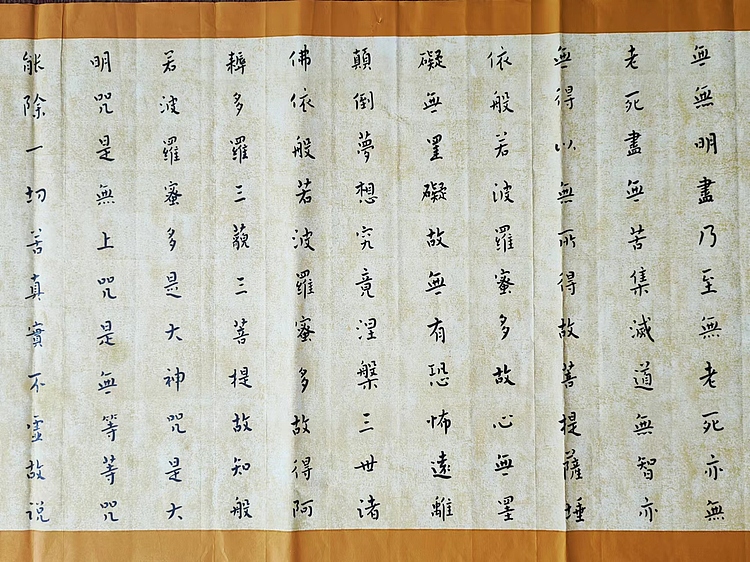 無無明盡乃至無老死亦無
老死盡無苦集滅道無智亦
無得以無所得故菩提薩埵
依般若波羅蜜多故心無罣
礙無罣礙故無有恐怖遠離
顛倒夢想究竟涅槃三世诸
佛依般若波羅蜜多故得阿
耨多羅三藐三菩提故知般
若波羅蜜多是大神咒是大
明咒是無上咒是無等等咒
能除一切苦真實不虛故说